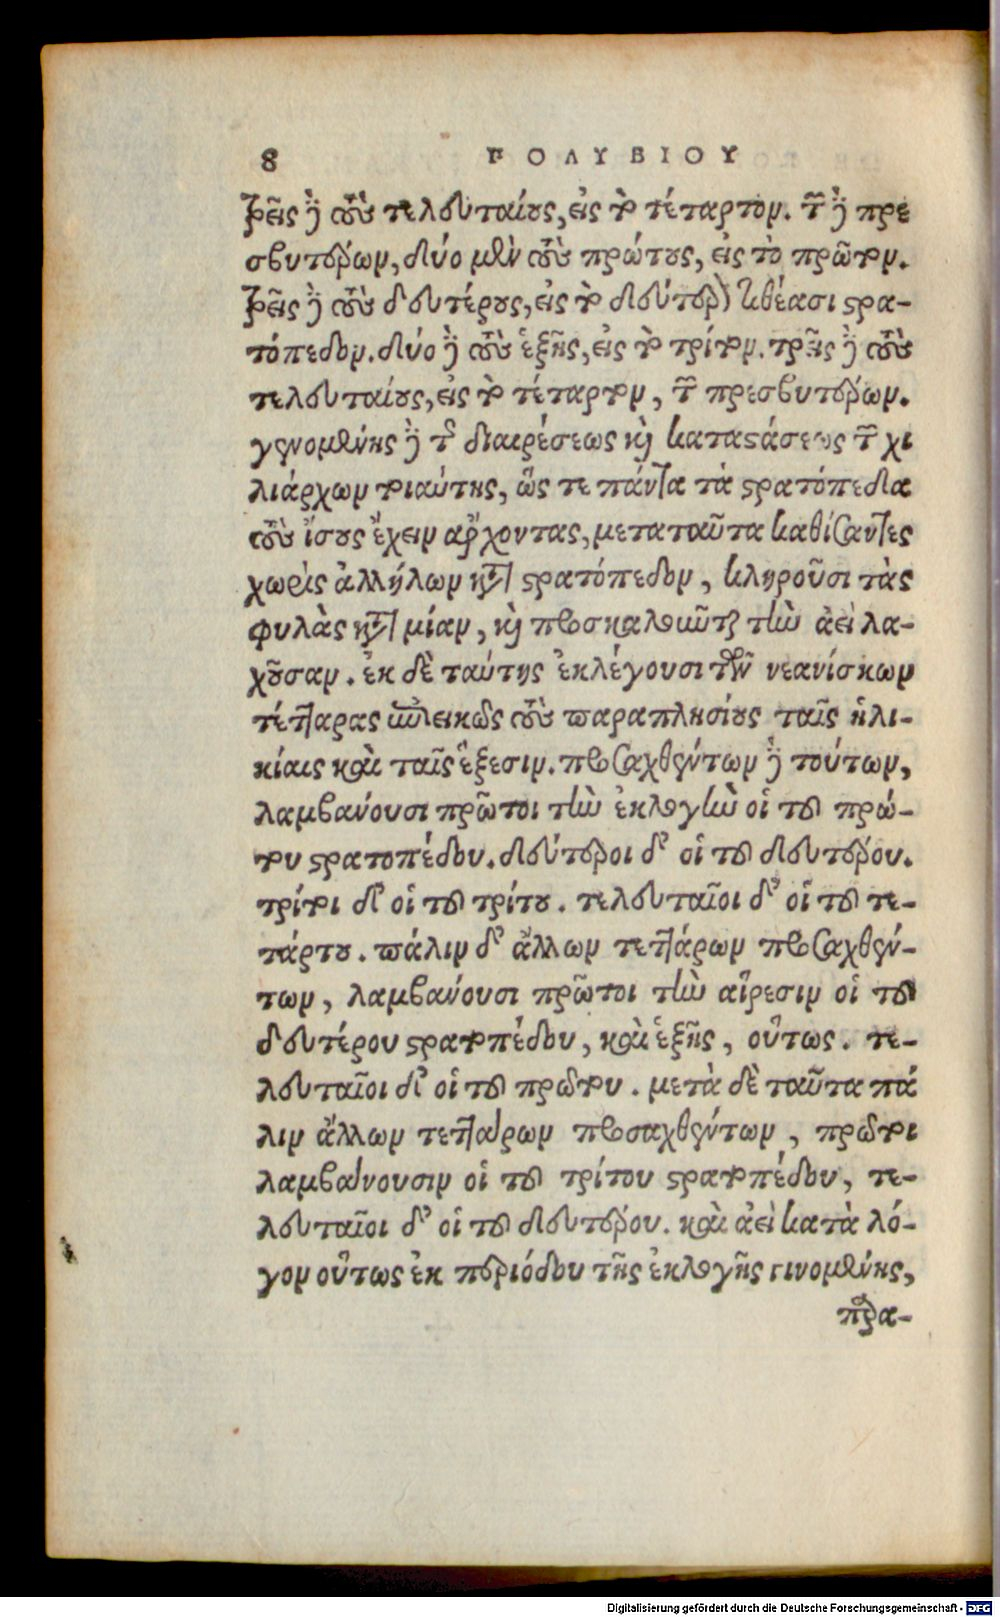 8 ΠΟΛΥΒΙΟΥ
τρεῖς δὲ τοὺς τελευταίους, εἰς τὸ τέταρτον. τῶν δὲ πρε
σβυτέρων, δύο μὲν τοὺς πρώτους, εἰς τὸ πρῶτον.
τρεῖς δὲ τοὺς δευτέρους, εἰς τὸ δεύτερον τιθέασι στρα-
τόπεδον. δύο δὲ τοὺς ἑξῆς, εἰς τὸ τρίτον. τρεῖς δὲ τοὺς
τελευταίους, εἰς τὸ τέταρτον, τῶν πρεσβυτέρων.
γενομένης δὲ τῆς διαιρέσεως καὶ καταστάσεως τῶν χι
λιάρχων τοιαύτης, ὥς τε πάντα τὰ στρατόπεδα
τοὺς ἴσους ἔχειν ἄρχοντας, μεταταῦτα καθίσαντες
χωρὶς ἀλλήλων κατὰ στρατόπεδον, κληροῦσι τὰς
φυλὰς κατὰ μίαν, καὶ προσκαλοῦνται τὴν ἀεὶ λα-
χοῦσαν. ἐκ δὲ ταύτης ἐκλέγουσι τῶν νεανίσκων
τέτταρας ἐπιεικῶς τοὺς παραπλησίους ταῖς ἡλι-
κίαις καὶ ταῖς ἕξεσιν. προσαχθέντων δὲ τούτων,
λαμβάνουσι πρῶτοι τὴν ἐκλογὴν οἱ τοῦ πρώ-
του στρατοπέδου. δεύτεροι δ' οἱ τοῦ δευτέρου.
τρίτοι δ' οἱ τοῦ τρίτου. τελευταῖοι δ' οἱ τοῦ τε-
τάρτου. πάλιν δ' ἄλλων τεττάρων προσαχθέν-
των, λαμβάνουσι πρῶτοι τὴν αἵρεσιν οἱ τοῦ
δευτέρου στρατοπέδου, καὶ ἑξῆς, οὕτως. τε-
λευταῖοι δ' οἱ τοῦ πρώτου. μετὰ δὲ ταῦτα πά
λιν ἄλλων τεττάρων προσαχθέντων, πρῶτοι
λαμβάνουσιν οἱ τοῦ τρίτου στρατοπέδου, τε-
λευταῖοι δ' οἱ τοῦ δευτέρου. καὶ ἀεὶ κατὰ λό-
γον οὕτως ἐκ περιόδου τῆς ἐκλογῆς γινομένης,
πλα-
Digitalisierung gefördert durch die Deutsche Forschungsgemeinschaft - DFG